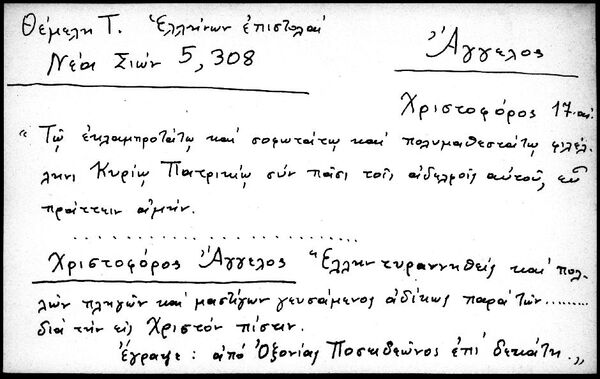 Θέμελη Τ. Ἑλλήνων ἐπιστολαί
Νέα Σιών 5, 308
Ἄγγελος
Χριστοφόρος 17 αἰ.
"Τῷ ἐκλαμπροτάτῳ καί σοφωτάτῳ καί πολυμαθεστάτῳ φιλέλ-
ληνι Κυρίῳ Πατρικίῳ σύν πᾶσι τοῖς ἀδελφοῖς αὐτοῦ, εὖ
πράττειν ἀμήν.
Χριστοφόρος Ἄγγελος "Ἕλλην τυραννηθείς καί πολ-
λῶν πληγῶν καί μαστίγων γευσάμενος ἀδίκως παρά τῶν.........
διά τήν εἰς Χριστόν πίστιν.
Ἔγραψε : ἀπό Ὀξονίας Ποσειδεῶνος ἐπί δεκάτῃ."